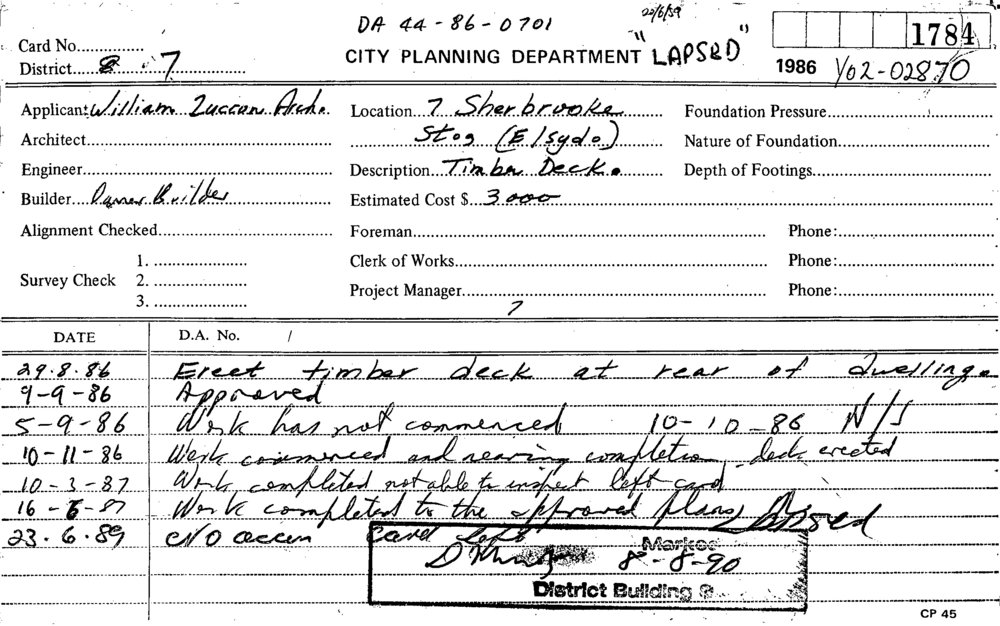 DA 44-86-0701
"LAPSED"
1784
Card No.
CITY PLANNING DEPARTMENT
1986 Y02-02870
District 7
Applicant: William Zuccon Archo
Location 7 Sherbrooke
Foundation Pressure
Architect
St. (E/Syd.)
Nature of Foundation
Engineer
Description Timber Deck.
Depth of Footings
Builder Owner Builder
Estimated Cost $ 3000
Alignment Checked
Foreman
Phone:
1.
Clerk of Works
Phone:
Survey Check 2.
Project Manager
Phone:
3.
7
DATE D.A. No. /
29.8.86 Erect timber deck at rear of dwelling.
9-9-86 Approved
5-9-86 Work has not commenced 10-10-86 N/S
10-11-86 Work commenced and nearing completion deck erected
10-3-87 Work completed not able to inspect left card
16-6-87 Work completed to the approved plans
23.6.89 Card left
8-8-90
District Building
CP 45